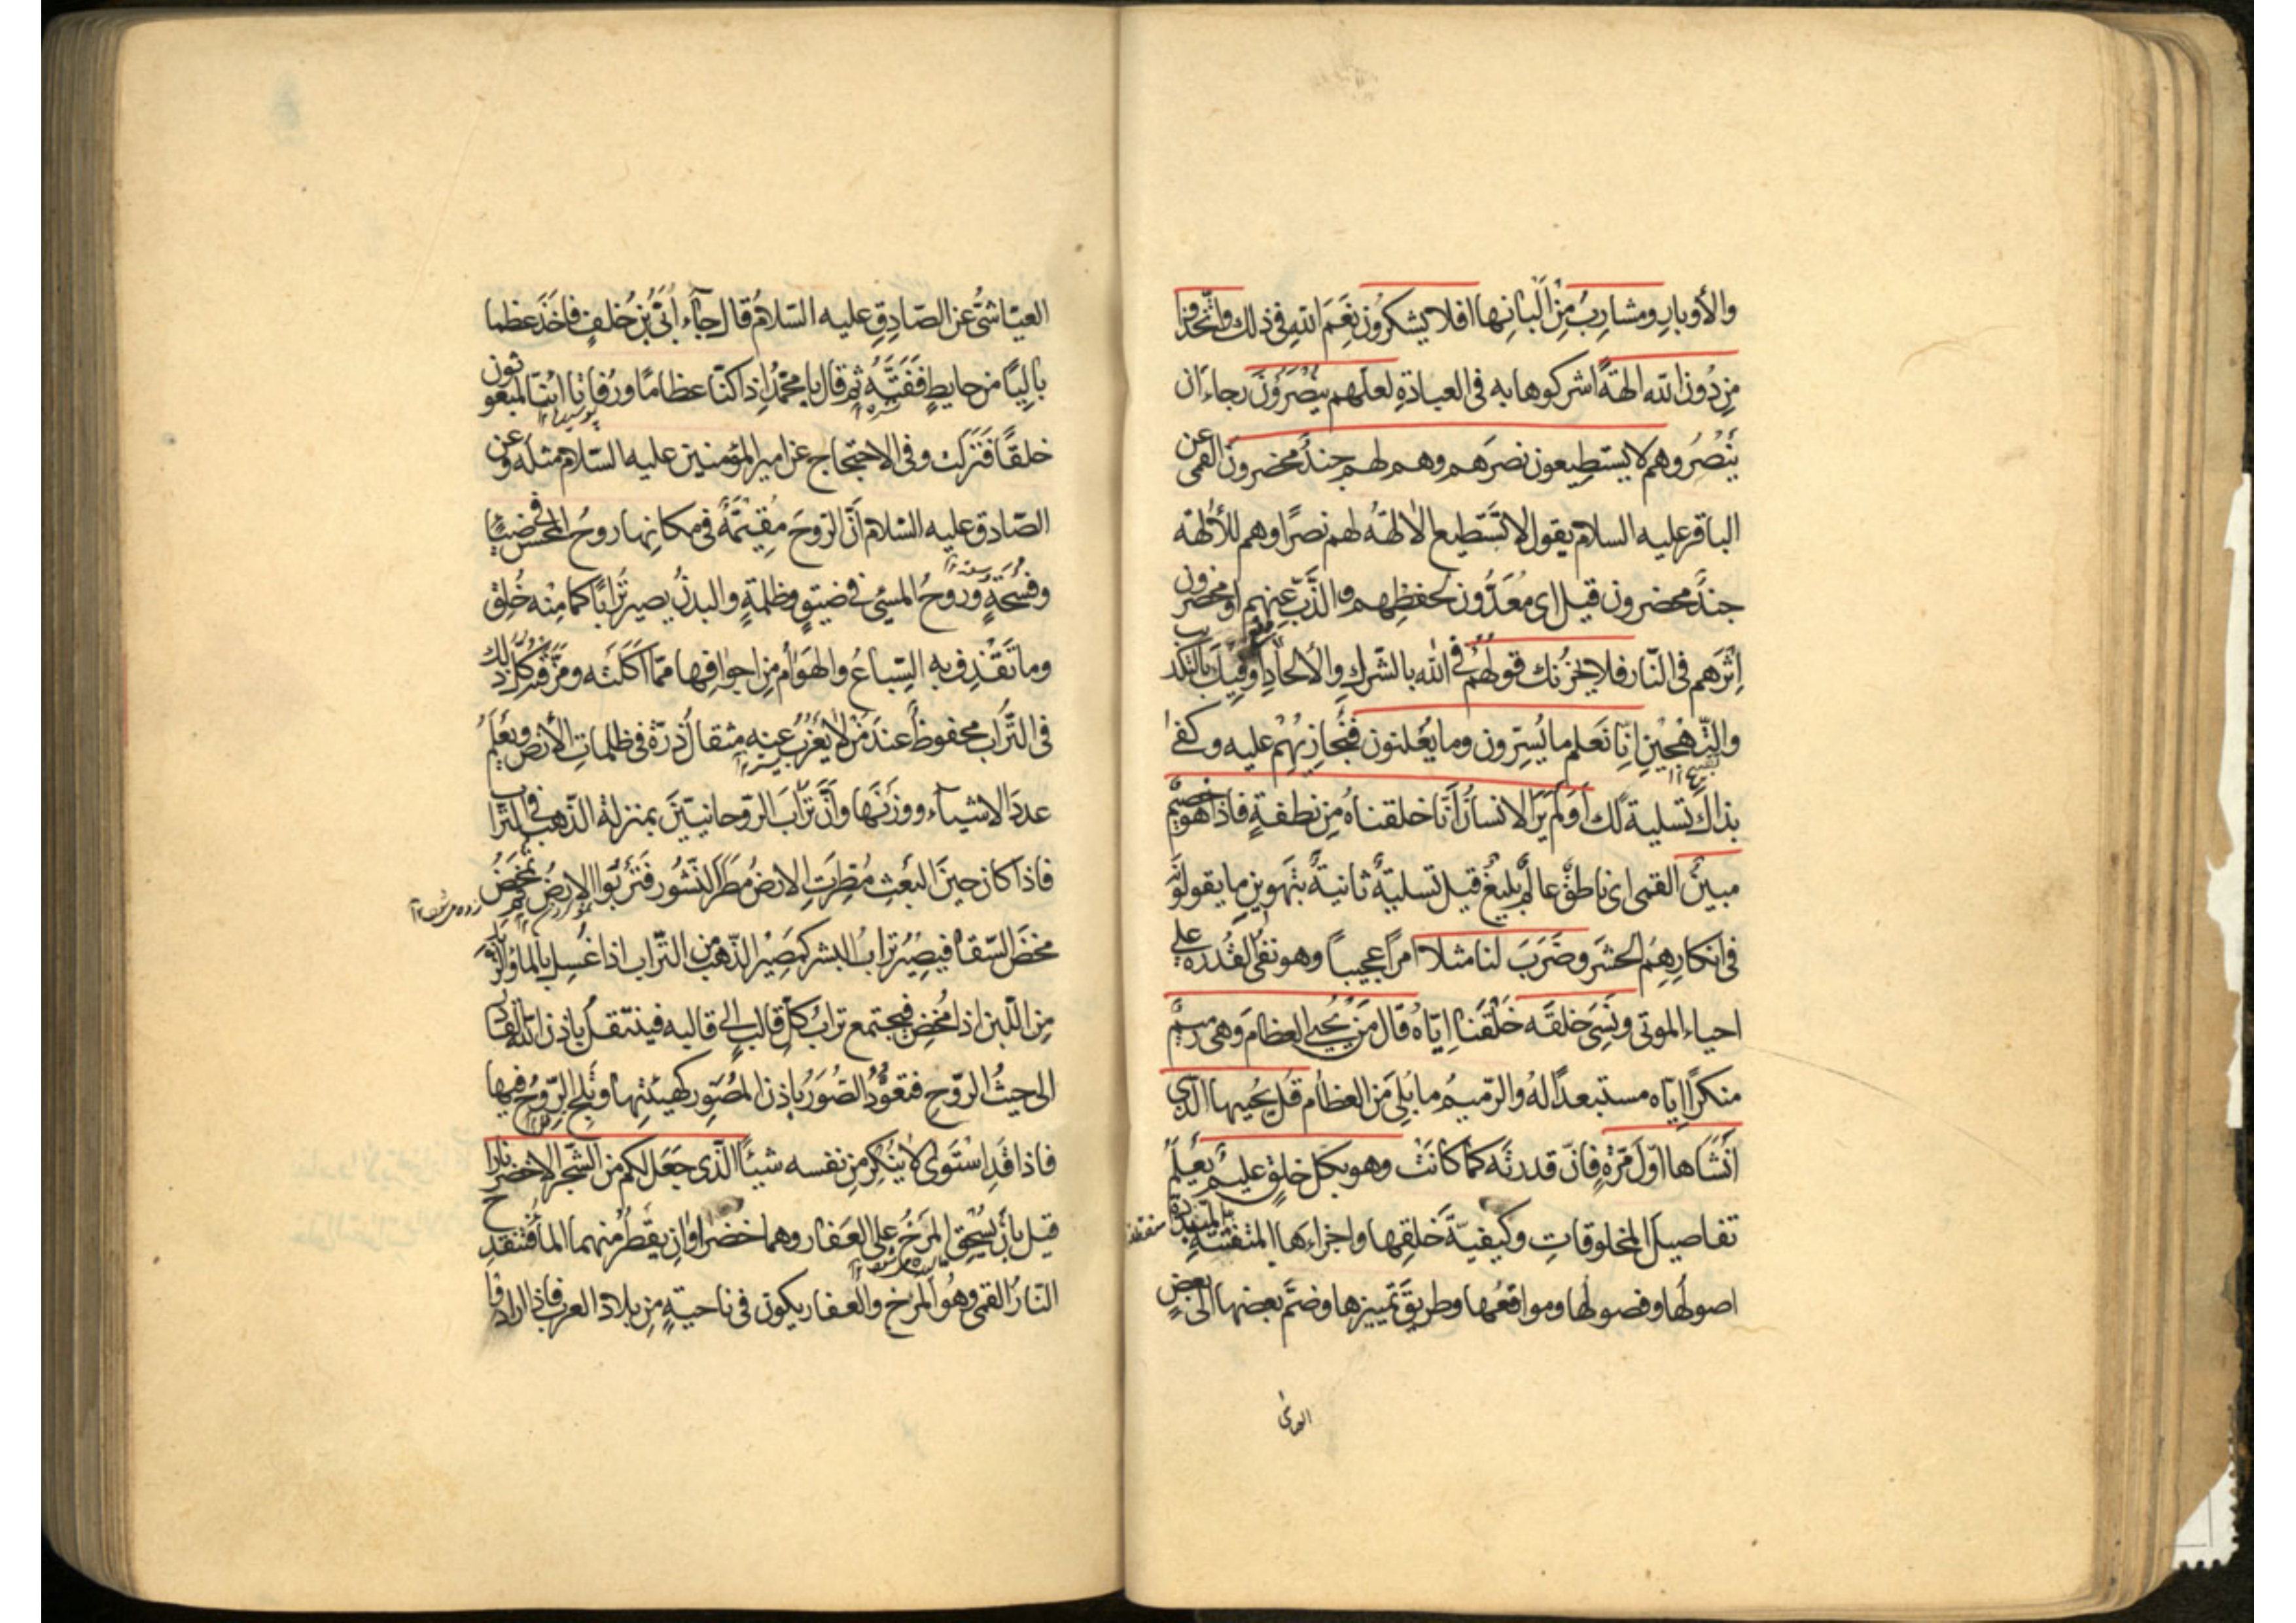 والأوبارِ ومشارِبُ مِنْ اَلْبانِها افلا يشكرُون نِعَمَ اللهِ فى ذلك واتّخذوا
مِن دُون الله الهةً اشركوها به فى العبادةِ لعلّهم يُنْصَرُونَ رجاءَ ان
يَنْصُرُوهم لا يستطيعون نصرَهم وهم لهم جندٌ محضرون القمى عن
الباقر عليه السلام يقول لا تَسْتَطيع الالهةُ لهم نصرًا وهم للألهة
جندٌ محضرون قيل اى مُعَدُّون لحفظِهم والذَّبِّ عنهم او محضرون
اِثرَهم فى النّار فلا يحزنك قولهُمْ فى الله بالشّركِ والألحادِ او فيك بالتكذيب
والتّهْجِينِ اِنّا نَعلم ما يُسِرّون وما يُعْلنون فنُجازِيْهِمْ عليه وكفى
بذلك تسلية لك اَوَلَمْ يَرَ الانسانُ اَنّا خلقناهُ مِن نطفةٍ فاذا هو خصيمٌ
مبينٌ القمى اى ناطقٌ عالمٌ بليغٌ قيل تسليةٌ ثانيةٌ بتهوينِ ما يقولونَه
فى انكارِهِمُ الحشرَ وضَرَبَ لنا مثلاً امرًا عجيباً وهو نفىُ القُدرة على
احياء الموتى ونَسِىَ خلقَه خَلْقَنا اِيّاهُ قال مَن يُحيى العظامَ وهى رميمٌ
منكرًا ايّاه مستبعدًا لهُ والرّميمُ ما بُلِىَ مَن العظام قُل يُحييها الّذى
اَنشَاها اوّل مَرّةٍ فانّ قدرتَه كما كانَتْ وهو بكلّ خلقٍ عليمٌ يَعلمُ
تفاصيلَ المخلوقاتِ وكيفيّةَ خَلقِها واجزاءَها المتفتّتةِ المتبدّدة
اصولَها وفصولَها ومواقعَها وطريقَ تمييزها وضمّ بعضها الى بعضٍ
العياشىُّ عن الصّادِقِ عليه السّلامُ قال جاء اُبَىُّ بْنُ خلفٍ فاخذ عظما
بالِيًا من حايطٍ فَفَتَّهُ ثم قال يا محمّدُ اِذا كنّا عظامًا ورُفاتًا ائنّا لمبعوثون
خلقًا فَنَزَلَت وفى الاحتجاج عن امير المؤمنين عليه السّلام مثله وعن
الصّادق عليه السّلام اَنَّ الرّوحَ مُقِيمَةٌ فى مكانِها روحُ المحسن فى ضياءٍ
وفُسْحَةٍ ورُوحُ المسئ فى ضيقٍ وظلمةٍ والبدنُ يصير تُرابًا كما مِنْه خُلِقَ
وما تَقْذِف به السّباعُ والهَوَامُ مِن اجوافِها ممّا اَكَلَتْه ومزّقَتْه كلّ ذلك
فى التّرابِ محفوظٌ عندَ مَنْ لا يَعْزُبُ عنه مِثقالُ ذرّة فى ظلماتِ الأرض ويَعْلَمُ
عددَ الاشياء ووزنَها وانَّ ترابَ الرّوحانيّينَ بمنزلة الذّهب فى التراب
فاذا كان حينَ البعثِ مُطِرَتِ الارضُ مَطرَ النّشُور فَتَرْبُوا الارضُ ثم تمخَضُ
مخضَ السّقاءِ فيصِيْرُ ترابُ البشر كمَصِيْر الذّهبِ من التّراب اذا غُسِل بالماء والزّبد
مِن اللّبن اذا مُخِضَ فيجتمع ترابُ كلّ قالبٍ الى قالبه فينتقلُ باذن الله القادر
الى حيثُ الرّوح فتعودُ الصُّوَرُ باذن المُصَوّر كهيئتِها وتَلِجُ الرّوحُ فيها
فاذا قدِ استَوى لا يُنكِرُ مِن نفسه شيئًا الّذى جعَل لكم من الشّجر الاخضرِ نارًا
قيل بأنْ يُسْحَقَ المَرخُ على العَفار وهما خضراوان يقطُر منهما الماء فتنقدح
النّارُ القمى وهُو المَرخُ والعفار يكون فى ناحيةٍ مِن بلاد العرب فاذا ارادوا